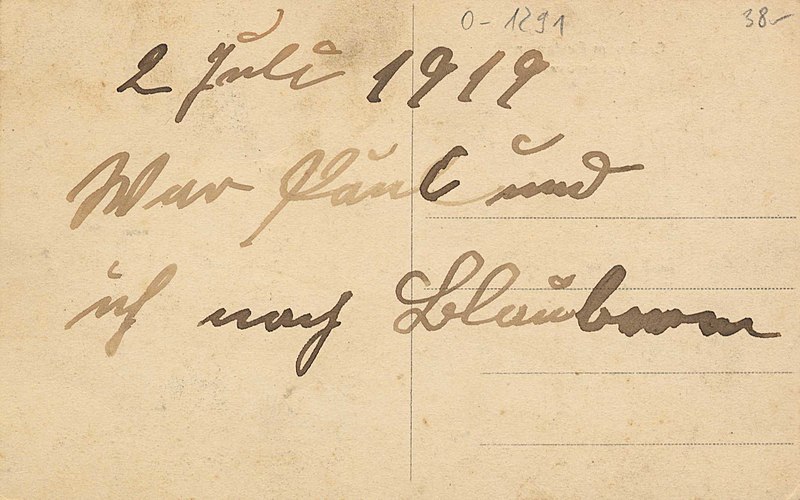 O-1291
38-
2 Juli 1919
War Paul und
ich nach